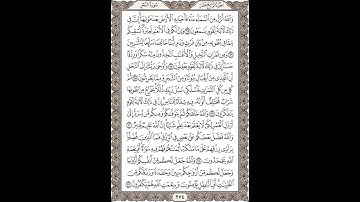 الجزء الرابع عشر سورة النحل
وَاللَّهُ أَنزَلَ مِنَ السَّمَاءِ مَاءً فَأَحْيَا بِهِ الْأَرْضَ بَعْدَ مَوْتِهَا إِنَّ فِي
ذَٰلِكَ لَآيَةً لِّقَوْمٍ يَسْمَعُونَ ٦٥ وَإِنَّ لَكُمْ فِي الْأَنْعَامِ لَعِبْرَةً نُّسْقِيكُم
مِّمَّا فِي بُطُونِهِ مِن بَيْنِ فَرْثٍ وَدَمٍ لَّبَنًا خَالِصًا سَائِغًا لِّلشَّارِبِينَ
٦٦ وَمِن ثَمَرَاتِ النَّخِيلِ وَالْأَعْنَابِ تَتَّخِذُونَ مِنْهُ سَكَرًا وَرِزْقًا
حَسَنًا إِنَّ فِي ذَٰلِكَ لَآيَةً لِّقَوْمٍ يَعْقِلُونَ ٦٧ وَأَوْحَىٰ رَبُّكَ إِلَى النَّحْلِ
أَنِ اتَّخِذِي مِنَ الْجِبَالِ بُيُوتًا وَمِنَ الشَّجَرِ وَمِمَّا يَعْرِشُونَ ٦٨
ثُمَّ كُلِي مِن كُلِّ الثَّمَرَاتِ فَاسْلُكِي سُبُلَ رَبِّكِ ذُلُلًا يَخْرُجُ مِن بُطُونِهَا
شَرَابٌ مُّخْتَلِفٌ أَلْوَانُهُ فِيهِ شِفَاءٌ لِّلنَّاسِ إِنَّ فِي ذَٰلِكَ لَآيَةً لِّقَوْمٍ
يَتَفَكَّرُونَ ٦٩ وَاللَّهُ خَلَقَكُمْ ثُمَّ يَتَوَفَّاكُمْ وَمِنكُم مَّن يُرَدُّ
إِلَىٰ أَرْذَلِ الْعُمُرِ لِكَيْ لَا يَعْلَمَ بَعْدَ عِلْمٍ شَيْئًا إِنَّ اللَّهَ عَلِيمٌ قَدِيرٌ
٧٠ وَاللَّهُ فَضَّلَ بَعْضَكُمْ عَلَىٰ بَعْضٍ فِي الرِّزْقِ فَمَا الَّذِينَ فُضِّلُوا
بِرَادِّي رِزْقِهِمْ عَلَىٰ مَا مَلَكَتْ أَيْمَانُهُمْ فَهُمْ فِيهِ سَوَاءٌ أَفَبِنِعْمَةِ
اللَّهِ يَجْحَدُونَ ٧١ وَاللَّهُ جَعَلَ لَكُم مِّنْ أَنفُسِكُمْ أَزْوَاجًا
وَجَعَلَ لَكُم مِّنْ أَزْوَاجِكُم بَنِينَ وَحَفَدَةً وَرَزَقَكُم مِّنَ
الطَّيِّبَاتِ أَفَبِالْبَاطِلِ يُؤْمِنُونَ وَبِنِعْمَتِ اللَّهِ هُمْ يَكْفُرُونَ ٧٢
٢٧٤